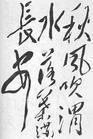 秋风吹渭
水落叶满
长安